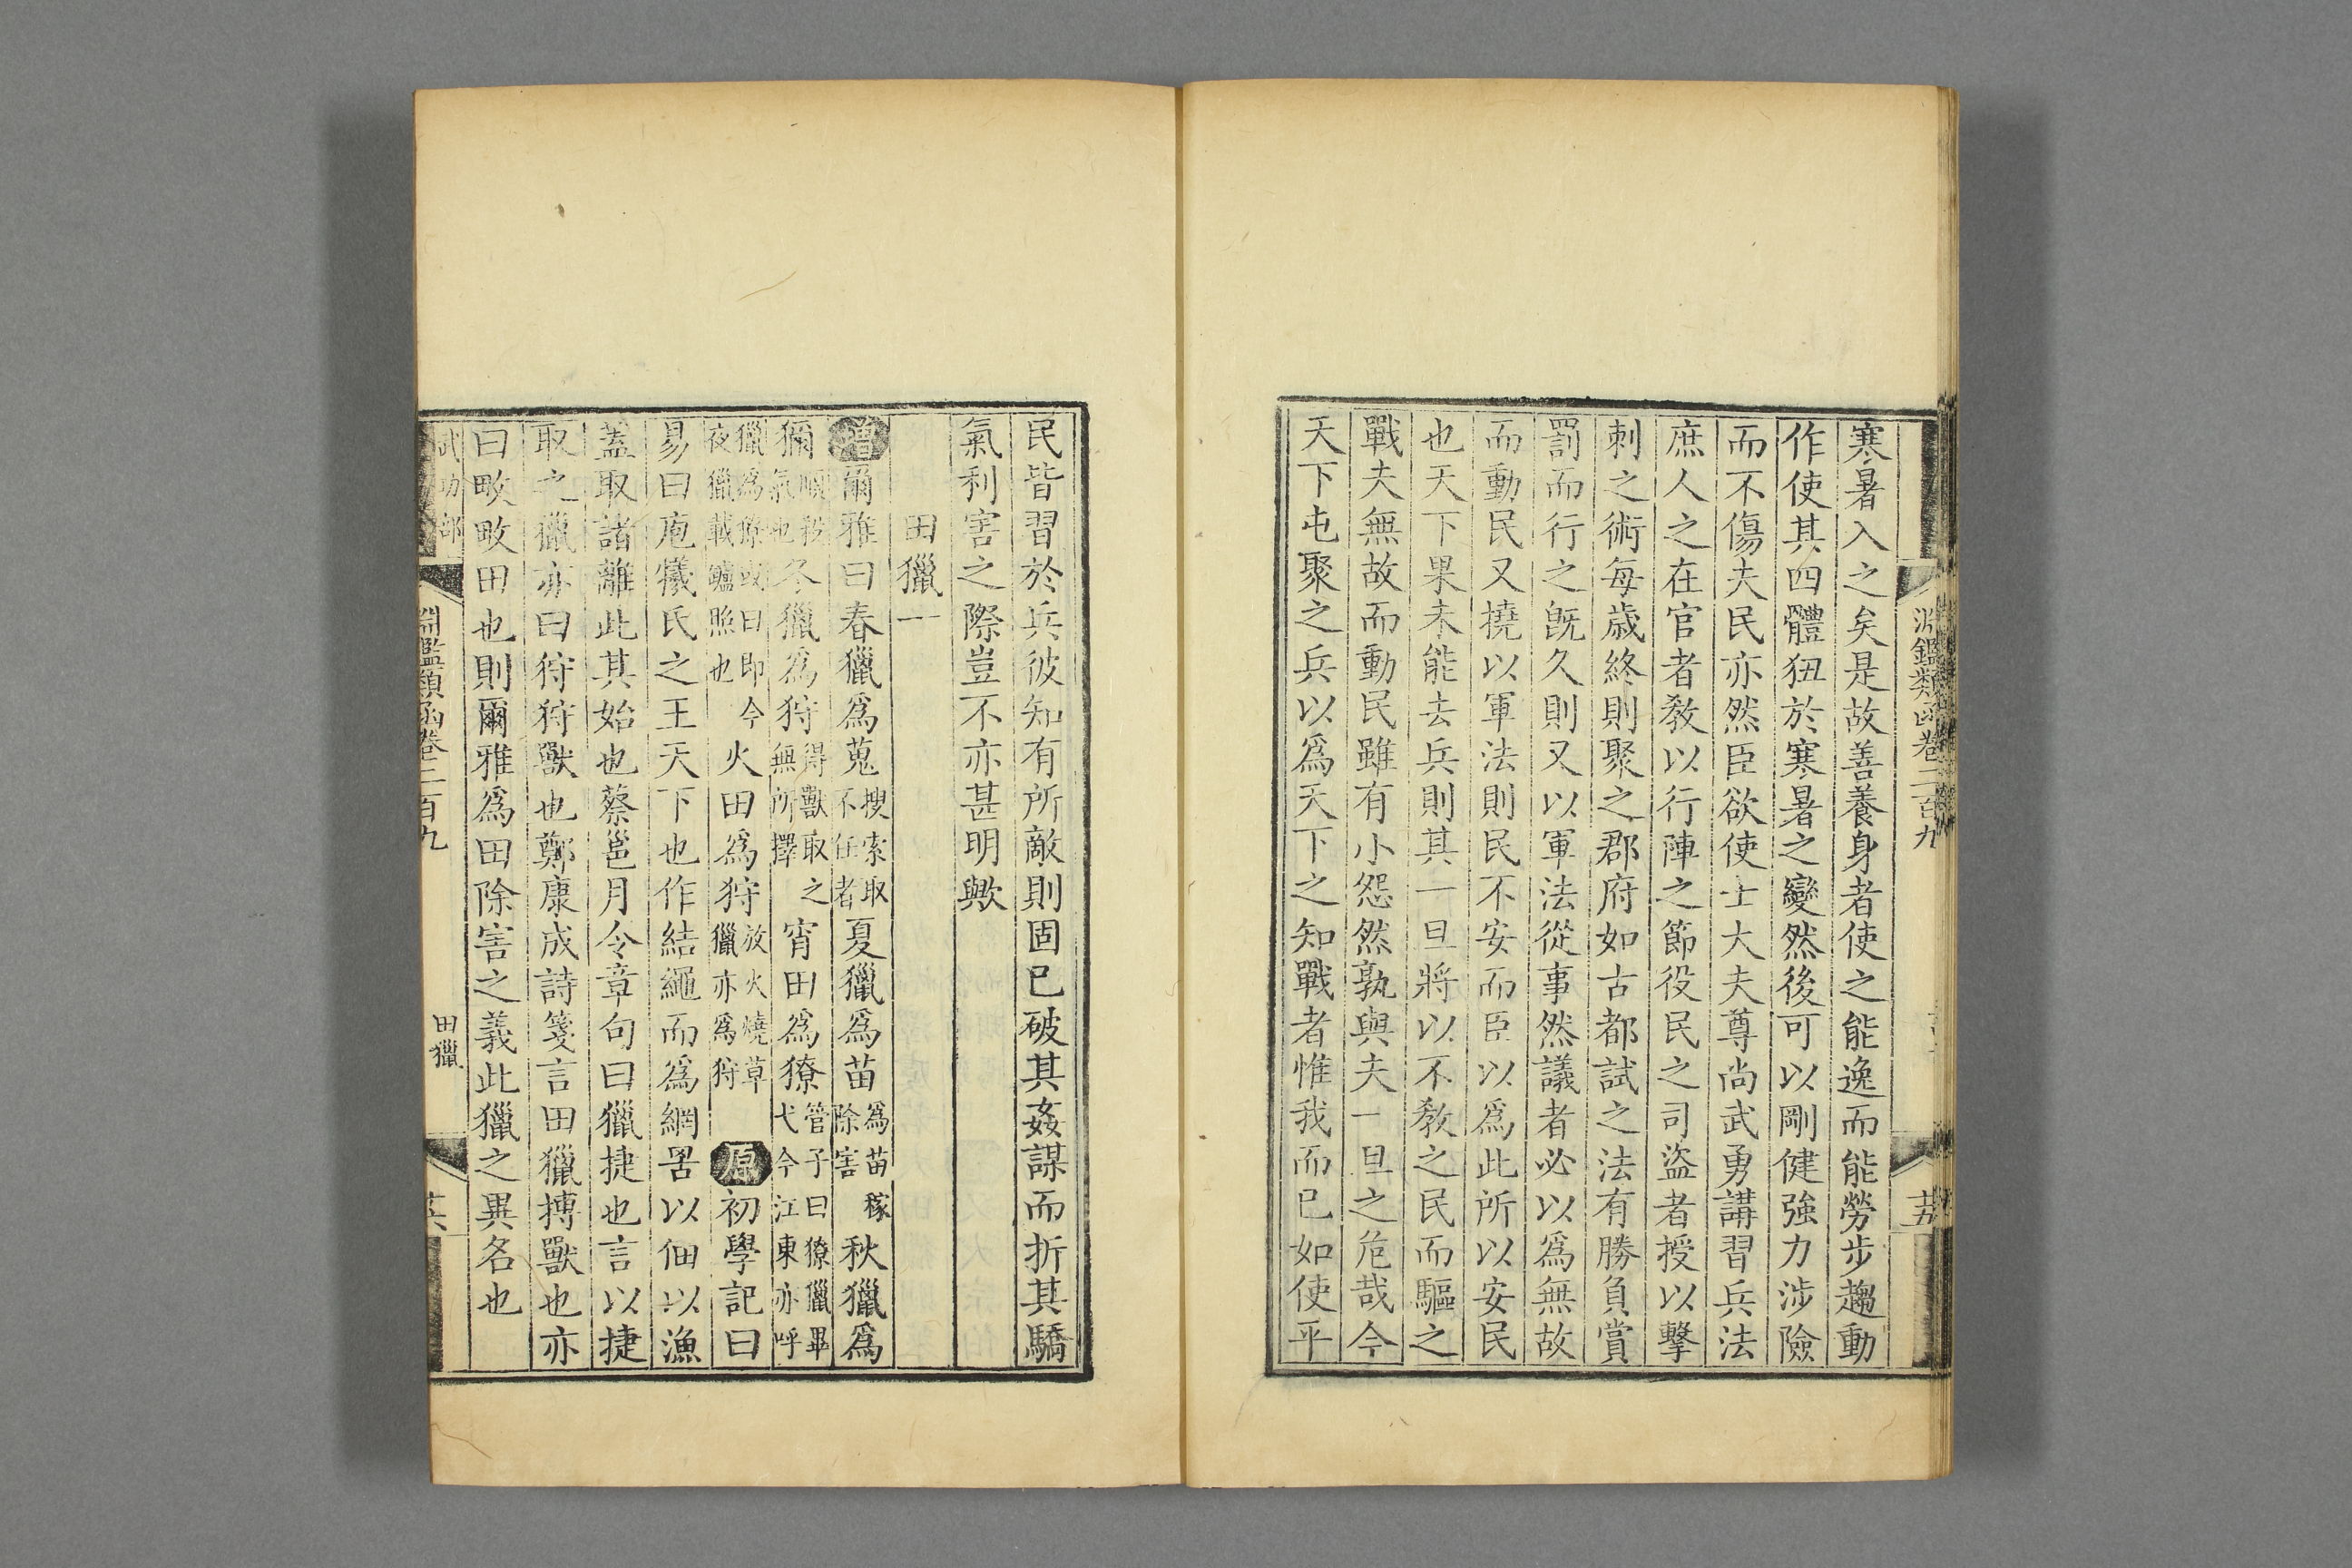 淵鑑類函卷二百九
廿五
寒暑入之矣是故善養身者使之能逸而能勞步趨動
作使其四體狃於寒暑之變然後可以剛健強力涉險
而不傷夫民亦然臣欲使士大夫尊尚武勇講習兵法
庶人之在官者教以行陣之節役民之司盜者授以擊
刺之術每歲終則聚之郡府如古都試之法有勝負賞
罰而行之旣久則又以軍法從事然議者必以爲無故
而動民又撓以軍法則民不安而臣以爲此所以安民
也天下果未能去兵則其一旦將以不教之民而驅之
戰夫無故而動民雖有小怨然孰與夫一旦之危哉今
天下屯聚之兵以爲天下之知戰者惟我而已如使平
民皆習於兵彼知有所敵則固已破其姦謀而折其驕
氣利害之際豈不亦甚明歟
田獵一
增爾雅曰春獵爲蒐搜索取不任者夏獵爲苗爲苗稼除害秋獵爲
獮順殺氣也冬獵爲狩得獸取之無所擇宵田爲獠管子曰獠獵畢弋今江東亦呼
獵爲獠或曰即今夜獵載鑪照也火田爲狩放火燒草獵亦爲狩原初學記曰
易曰庖犧氏之王天下也作結繩而爲網罟以佃以漁
蓋取諸離此其始也蔡邕月令章句曰獵捷也言以捷
取之獵亦曰狩狩獸也鄭康成詩箋言田獵搏獸也亦
曰畋畋田也則爾雅爲田除害之義此獵之異名也
武功部
淵鑑類函卷二百九
田獵
廿六